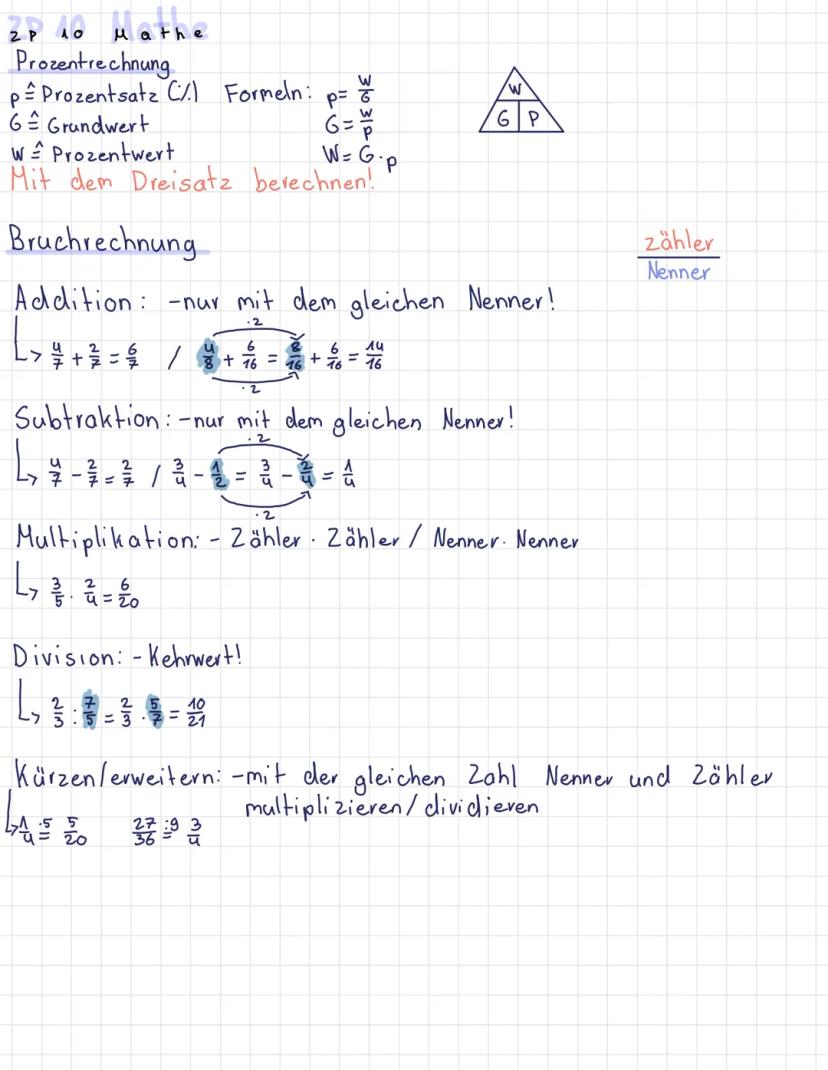 ZP 10 Mathe
ZP 10 Mathe
Prozentrechnung
p ≙ Prozentsatz (%) Formeln: p = W/G
G ≙ Grundwert G = W/p
W ≙ Prozentwert W = G · p
W
G P
Mit dem Dreisatz berechnen!
Bruchrechnung
zähler
Nenner
Addition: - nur mit dem gleichen Nenner!
· 2
↳ 4/7 + 2/7 = 6/7 / 4/8 + 6/16 = 8/16 + 6/16 = 14/16
· 2
Subtraktion: - nur mit dem gleichen Nenner!
· 2
↳ 4/7 - 2/7 = 2/7 / 3/4 - 1/2 = 3/4 - 2/4 = 1/4
· 2
Multiplikation: - Zähler · Zähler / Nenner · Nenner
↳ 3/5 · 2/4 = 6/20
Division: - Kehrwert!
↳ 2/3 : 7/5 = 2/3 · 5/7 = 10/21
Kürzen/erweitern: - mit der gleichen Zahl Nenner und Zähler
multiplizieren/dividieren
↳ 1/4 ·5 = 5/20 27/36 :9 = 3/4